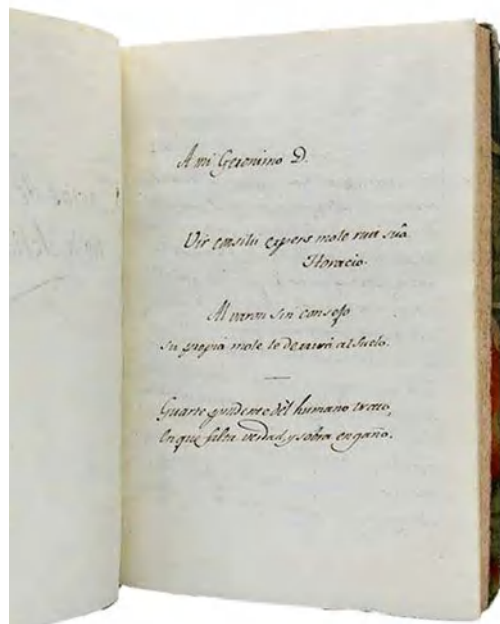 A mi Geronimo D.
Vir consilii expers mole ruit suâ
Horacio.
Al varon sin consejo
su propia mole le derrivará al suelo.
Guarte prudente del humano trato,
En que falta verdad, y sobra engaño.